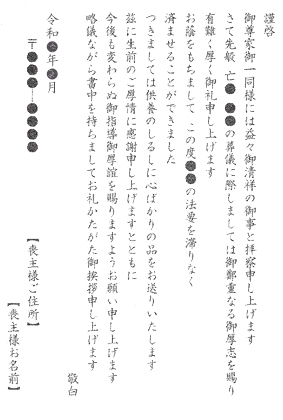 謹啓
御尊家御一同様には益々御清祥の御事と拝察申し上げます
さて先般 亡●● ●●の葬儀に際しましては御鄭重なる御厚志を賜り
有難く厚く御礼申し上げます
お蔭をもちまして、この度●●の法要を滞りなく
済ませることができました
つきましては供養のしるしに心ばかりの品をお送りいたします
茲に生前のご厚情に感謝申し上げますとともに
今後も変わらぬ御指導御厚誼を賜りますようお願い申し上げます
略儀ながら書中を持ちましてお礼かたがた御挨拶申し上げます
敬白
令和●年●月
〒●●●-●●●●
【喪主様ご住所】
【喪主様お名前】